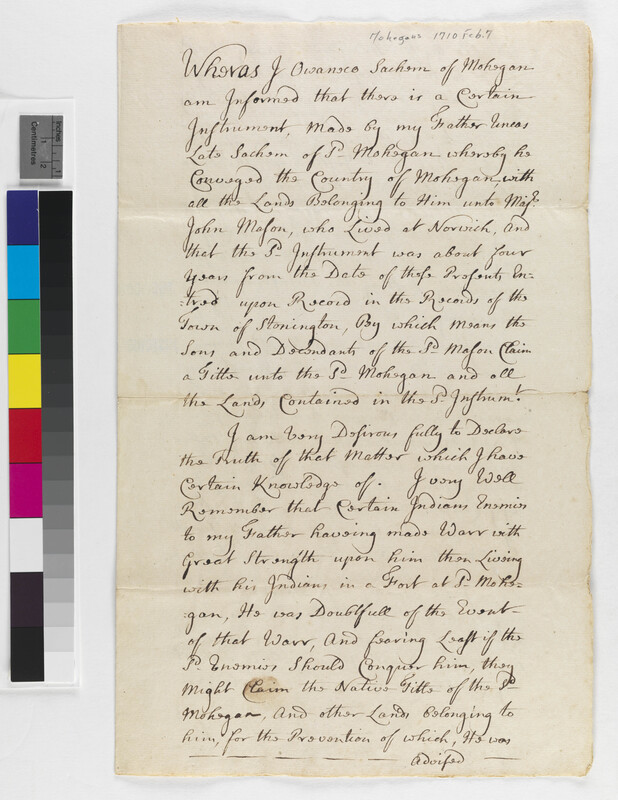 Mohegans 1710 Feb. 7
Wheras I Owaneco Sachem of Mohegan
am Informed that there is a Certain
Instrument, Made by my Father Uncas
Late Sachem of Sd. Mohegan whereby he
Conveged the Country of Mohegan, with
all the Lands Belonging to Him unto Majr.
John Mason, who Lived at Norwich, And
that the Sd. Instrument was about four
Years from the Date of these Presents En-
-tred upon Record in the Records of the
Town of Stonington, By which means the
Sons and Decendants of the Sd. Mason Claim
a Title unto the Sd. Mohegan and all
the Lands Contained in the Sd. Instrumt.
I am very Desirous fully to Declare
the Truth of that Matter which I have
Certain Knowledge of. I very Well
Remember that Certain Indians Enemies
to my Father haveing made Warr with
Great Strength upon him then Living
with his Indians in a Fort at Sd. Mohe-
-gan, He was Doubtfull of the Event
of that Warr, And fearing Least if the
Sd. Enemies Should Conquer him, they
Might Claim the Native Title of the Sd.
Mohegan, And other Lands belonging to
him, for the Prevention of which, He was
advised
Inches
1
Centimetres
1
2